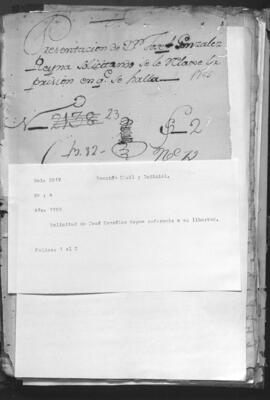 Presentacion de Dn Josef Gonzalez
Reyna Solicitando se le relaxe la
prision en q.e se halla
2178 23
F 2
No 12
Sección Civil y Judicial.
No. 4
Solicitud de José González Reyna referente a su libertad.
Folios: 1 al 2